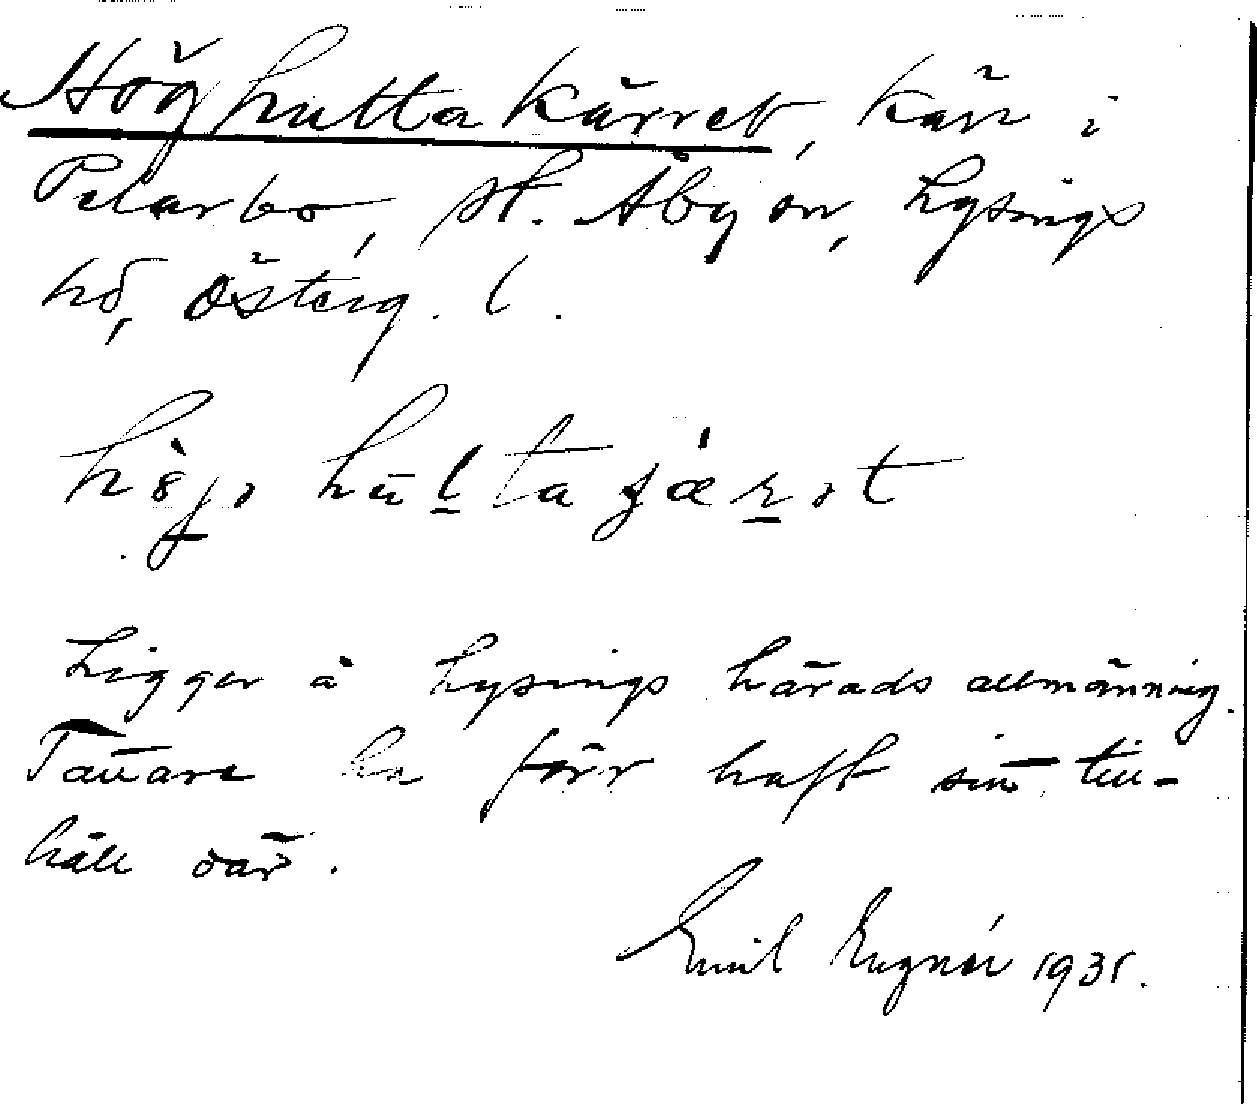 Höghultakärret, kärr i
Pelarbo, St. Åby sn, Lysings
hd, Österg. l.
Ligger å Lysings härads allmänning.
Tattare ha förr haft sitt till-
håll där.
Emil Eugnér 1931.